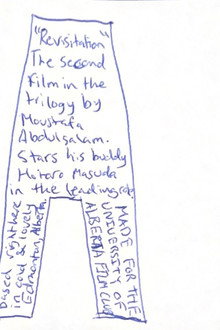 "Revisitation"
The second
Film in the
trilogy by
Moustafa
Abdulsalam.
Stars his buddy
Hotaro Masuda
in the leading role
based right here
in cold & lovely
Edmonton, Alberta.
MADE FOR THE
UNIVERSITY OF
ALBERTA FILM CLUB